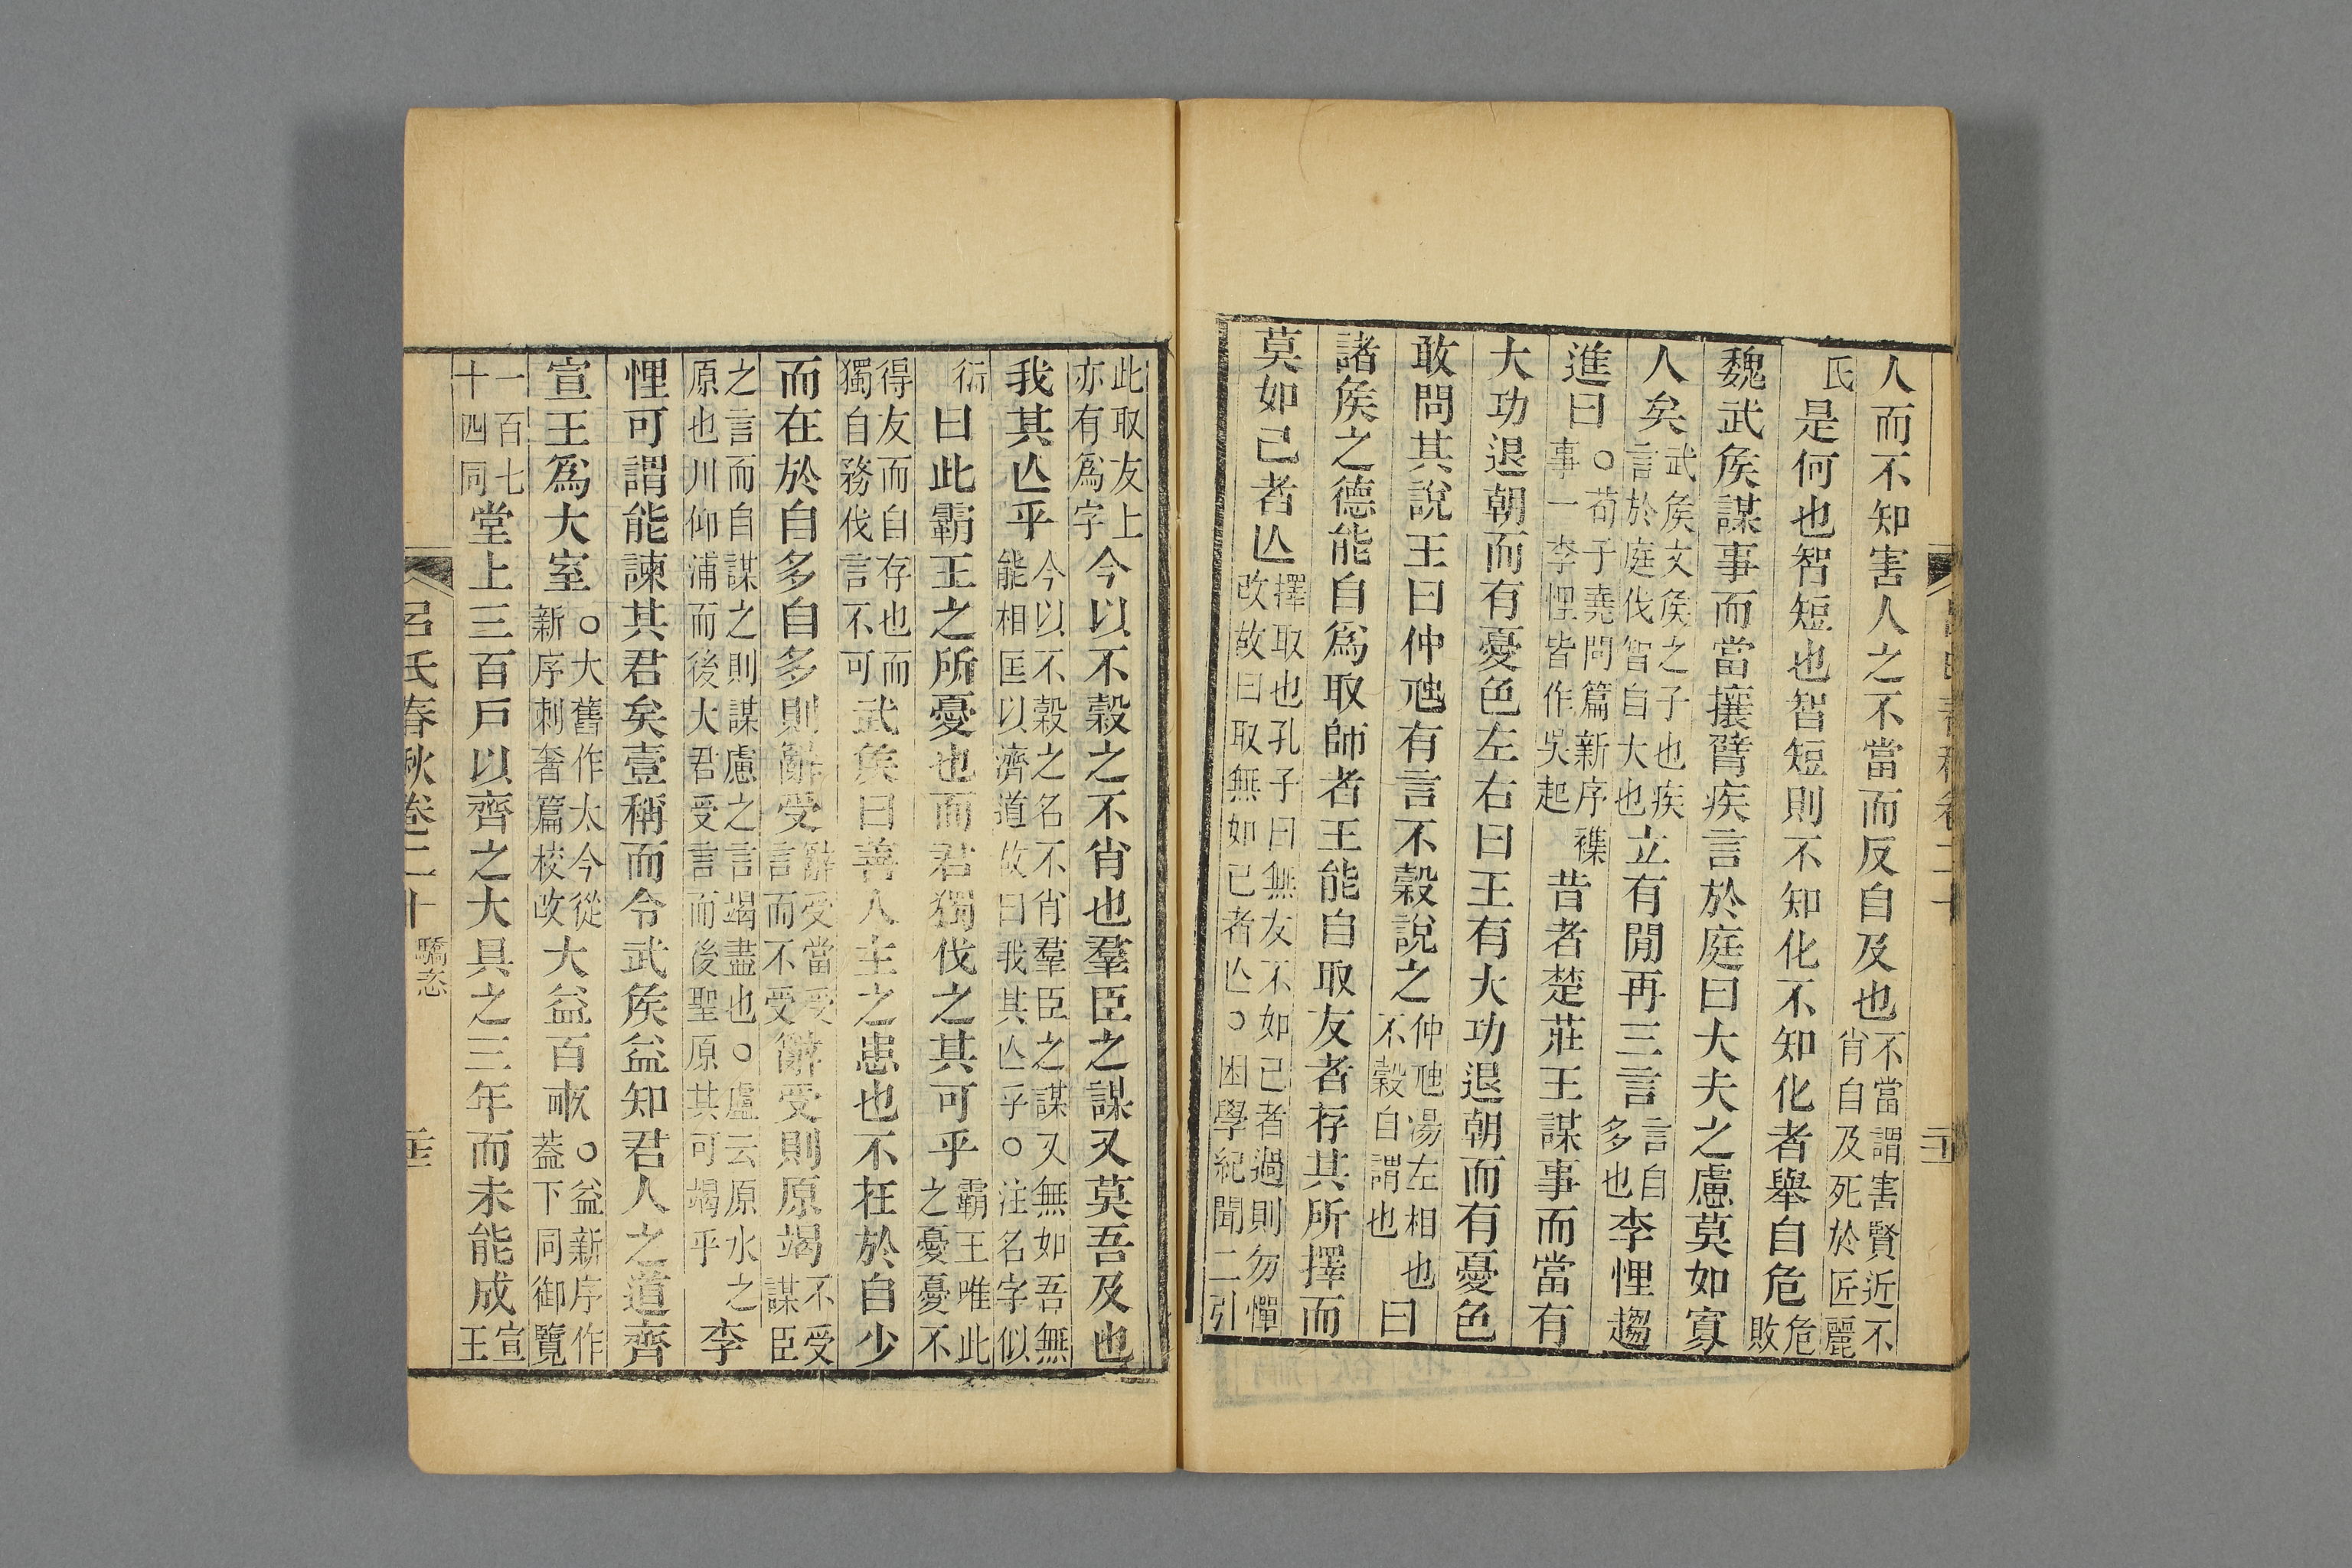 人而不知害人之不當而反自及也不當謂害賢近不肖自及死於匠麗
氏是何也智短也智短則不知化不知化者舉自危危敗
魏武矦謀事而當攘臂疾言於庭曰大夫之慮莫如寡
人矣武矦文矦之子也疾言於庭伐智自大也立有閒再三言言自多也李悝趨
進曰○荀子堯問篇新序襍事一李悝皆作吳起昔者楚莊王謀事而當有
大功退朝而有憂色左右曰王有大功退朝而有憂色
敢問其說王曰仲虺有言不穀說之仲虺湯左相也不穀自謂也曰
諸矦之德能自爲取師者王能自取友者存其所擇而
莫如己者亾擇取也孔子曰無友不如己者過則勿憚改故曰取無如己者亾○困學紀聞二引
此取友上亦有爲字今以不穀之不肖也羣臣之謀又莫吾及也
我其亾乎今以不穀之名不肖羣臣之謀又無如吾無能相匡以濟道故曰我其亾乎○注名字似
衍曰此霸王之所憂也而君獨伐之其可乎霸王唯此之憂憂不
得友而自存也而獨自務伐言不可武矦曰善人主之患也不在於自少
而在於自多自多則辭受辭受當受言而不受辭受則原竭不受謀臣
之言而自謀之則謀慮之言竭盡也○盧云原水之原也川仰浦而後大君受言而後聖原其可竭乎李
悝可謂能諫其君矣壹稱而令武矦益知君人之道齊
宣王爲大室○大舊作太今從新序刺奢篇校改大益百畝○益新序作蓋下同御覽
一百七十四同堂上三百戸以齊之大具之三年而未能成宣王
呂氏春秋卷二十 驕恣